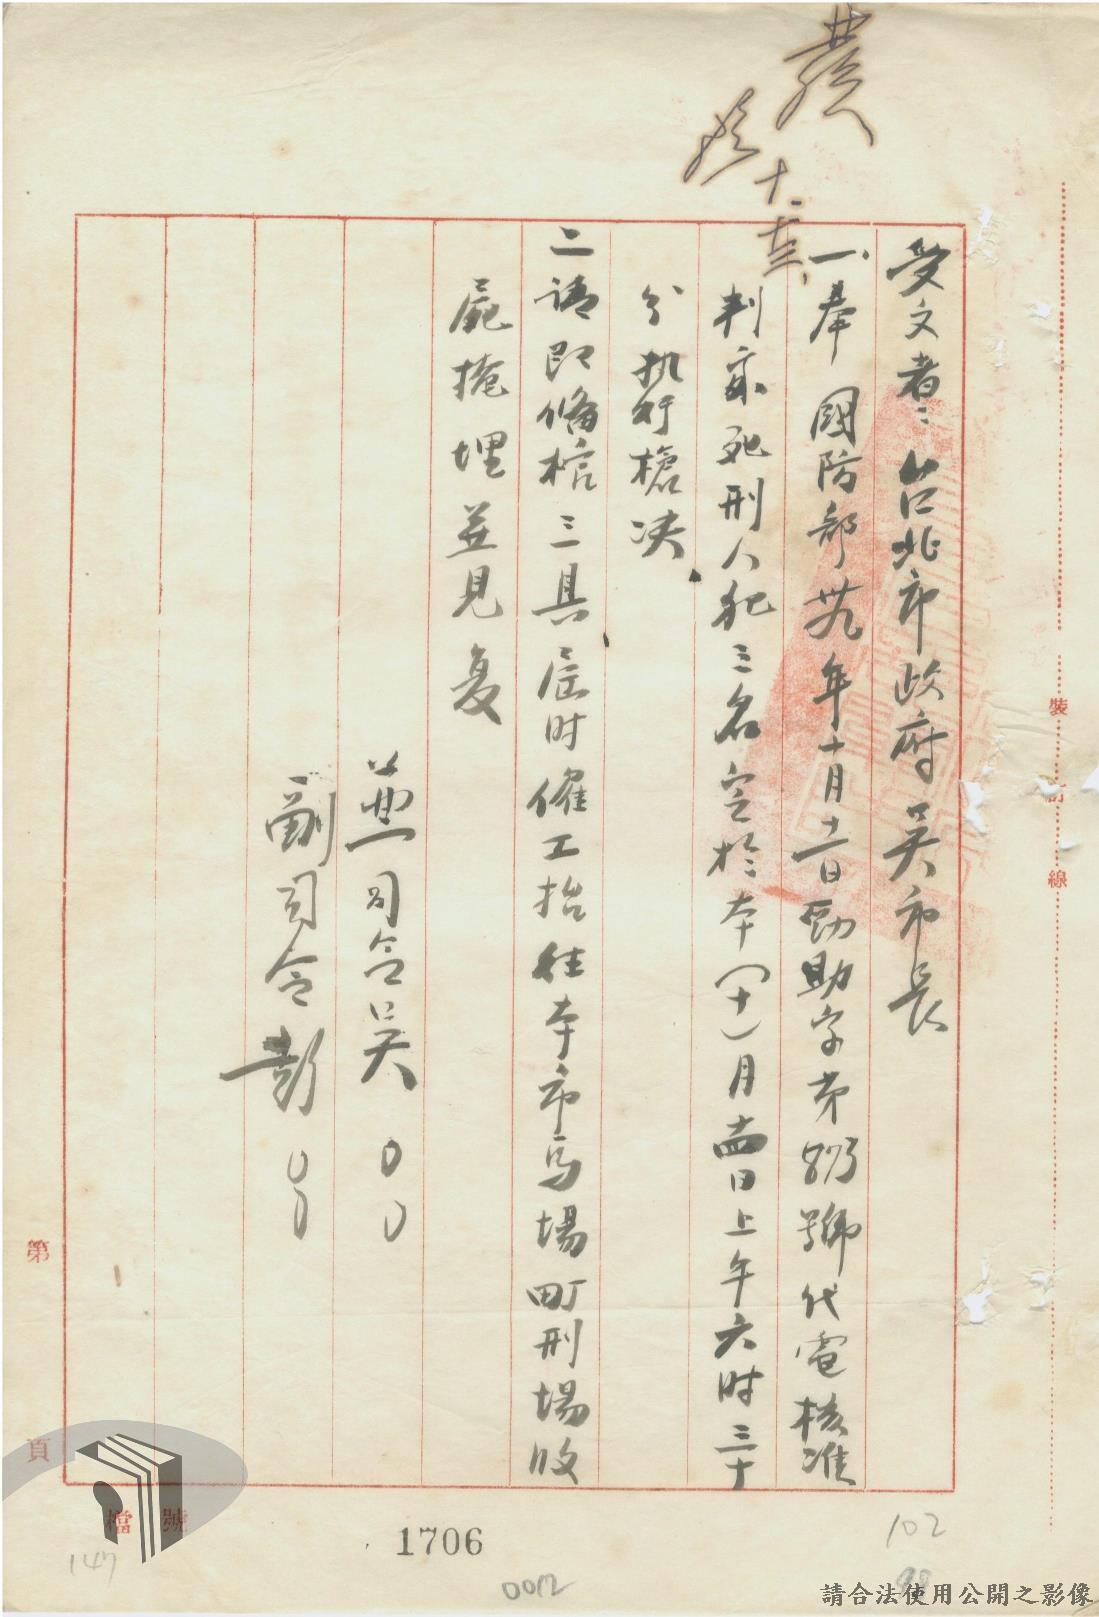 受文者：台北市政府吳市長
一、奉 國防部卅九年十月十二日勁助字第893號代電核准
判定死刑人犯三名定於本（十一）月十四日上午六时三十
分执行槍决．
二請即備棺三具屆时僱工抬往本市馬場町刑場收
屍掩埋並見复
兼司令吳〇〇
副司令彭〇〇
裝
訂
線
第
頁
檔 號
147
1706
0012
102
請合法使用公開之影像